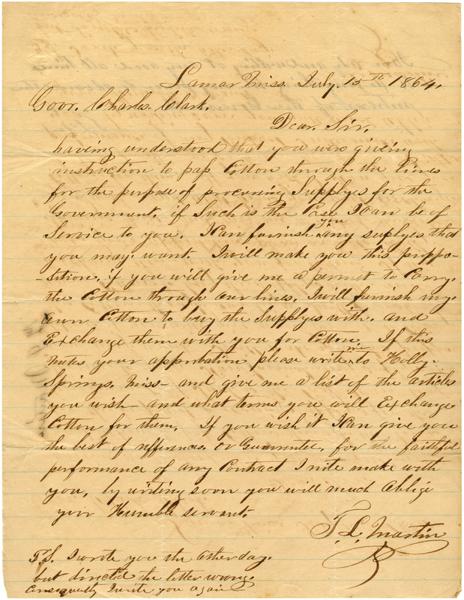 Lamar Miss July, 15th 1864,
Govr. Charles. Clark.
Dear. Sir,
having understood that you were giving
instruction to pass Cotton through the Lines
for the purpose of procuring, Supplyes for the
Government, if Such is the Case I Can be of
Service to you. I Can furnish you any suplyes that
you may. want. I will make you this proppo-
-sition, if you will give me a permit to Carry.
the Cotton through our lines, I will furnish my.
own Cotton to buy the Supplyes with, and
Exchange them with you for Cotton. If this
meets your approbation please write me to Holly.
Springs, Miss- and give me a list of the articles
you wish- and what terms you will Exchange
Cotton for them. If you wish it I Can give you
the best of refferences or Guarrentee, for the faithful
performance of any Contract I mite make with
you, by writing soon you will much Oblige
your Humble servant.
T. L. Martin
P.S. I wrote you the other day.
but directed the letter wrong.
Consequently I write you again